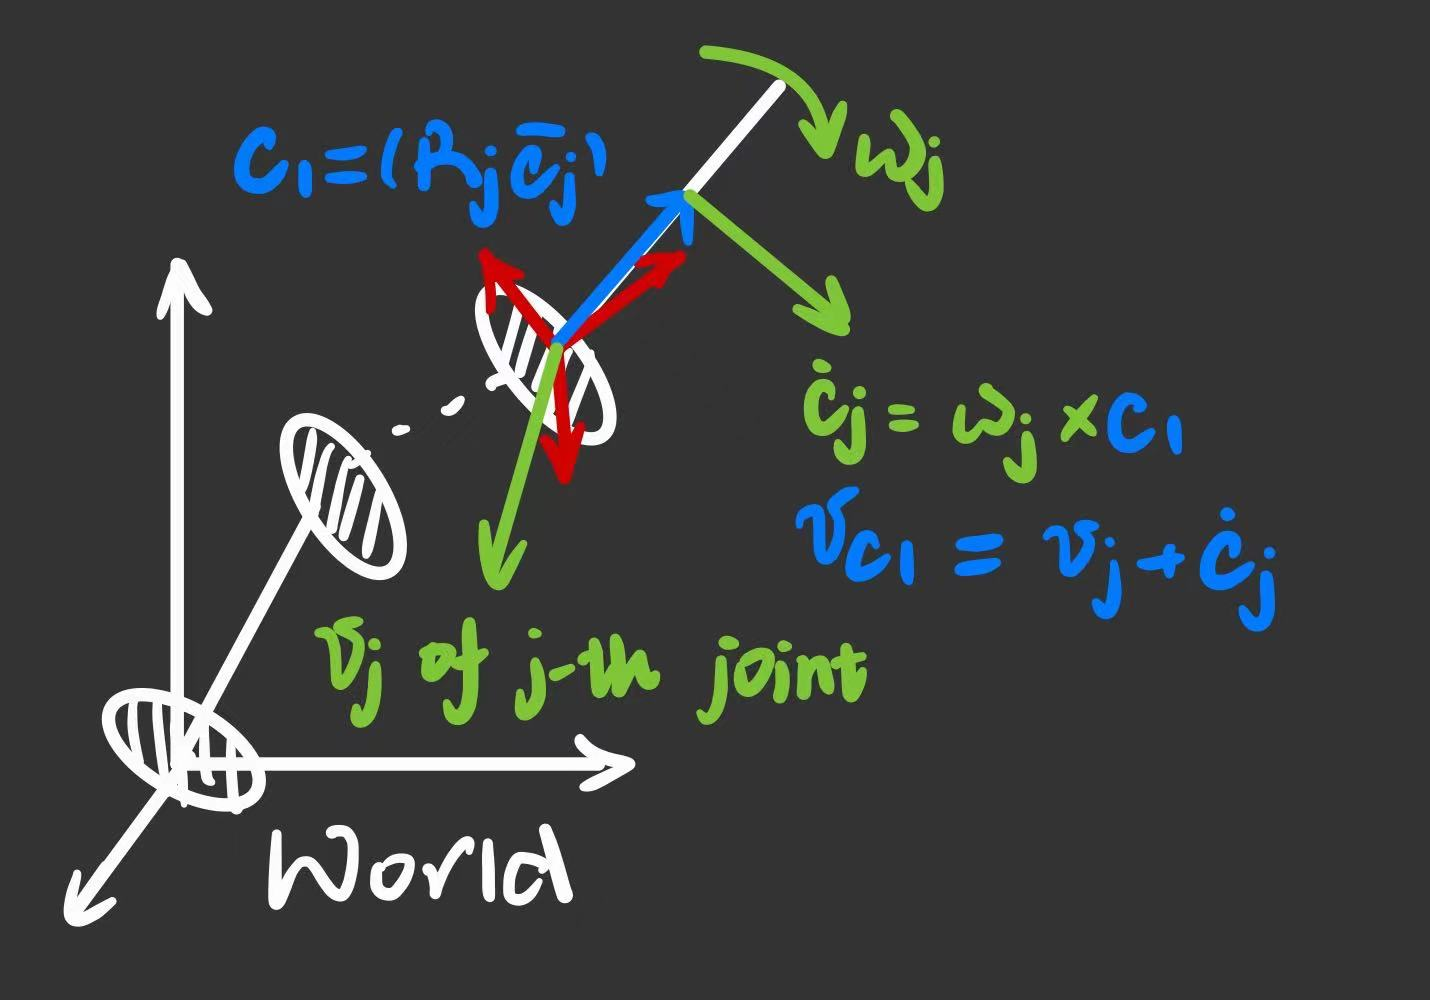 ωj
C1=(Rj c̄j)
ċj = ωj ×C1
vC1 = vj + ċj
vj of j-th joint
World